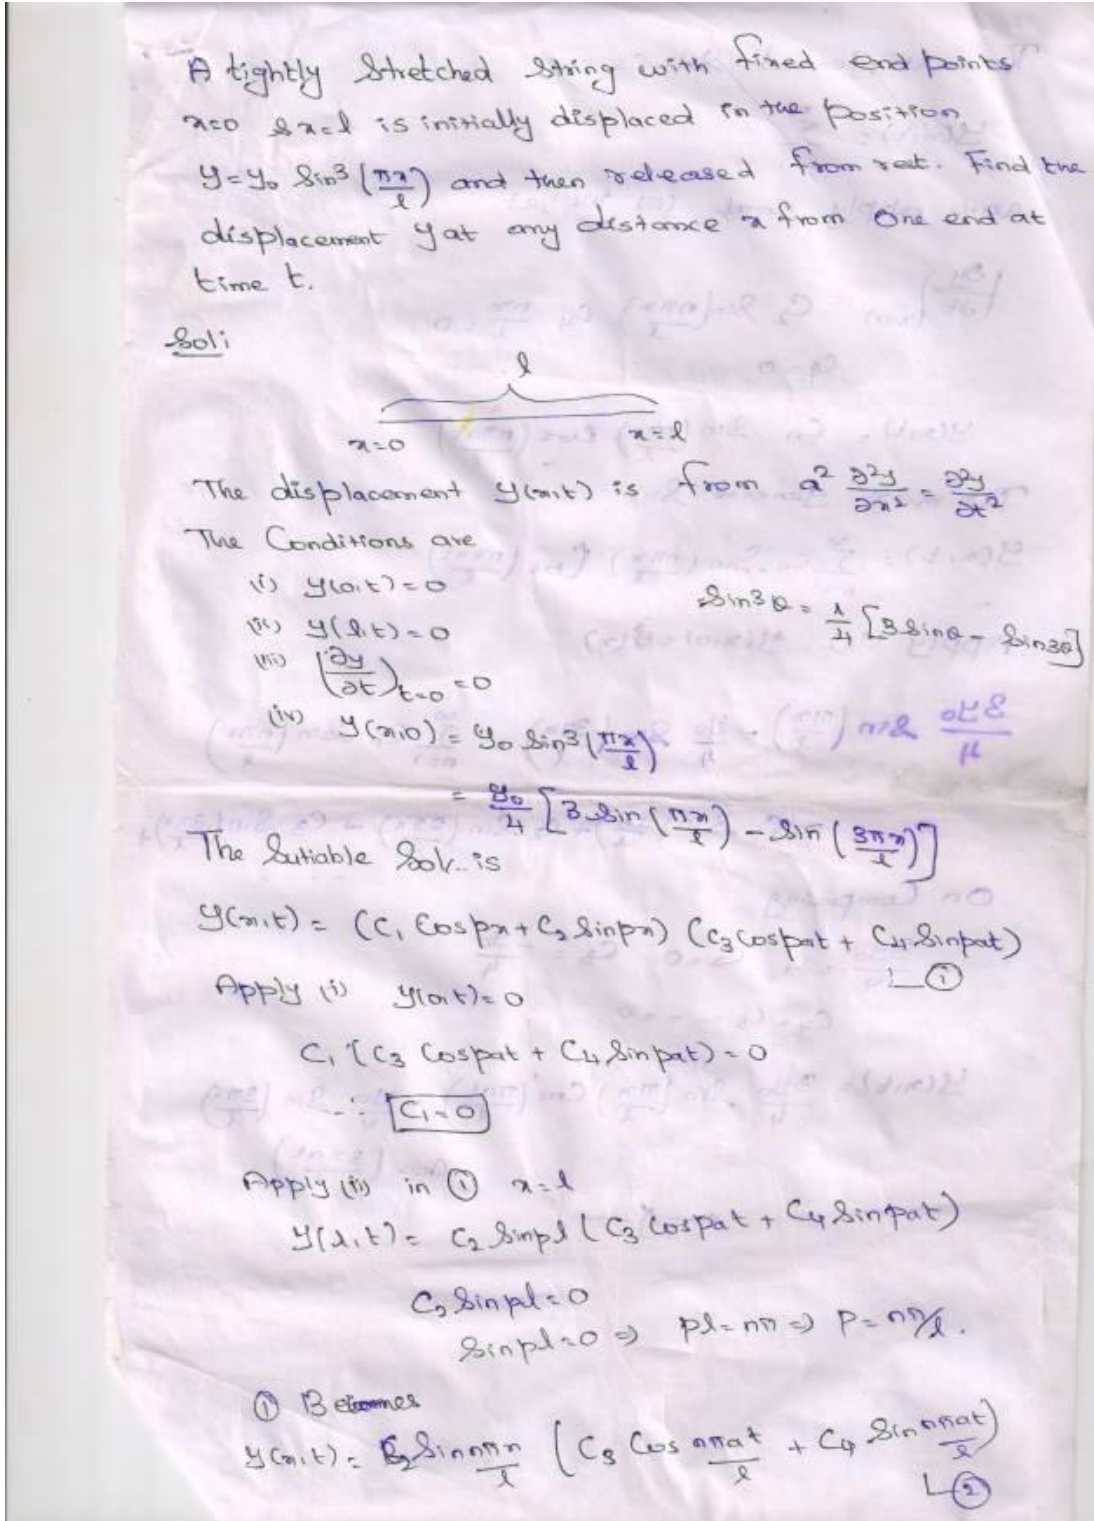 A tightly Stretched String with fixed end points
x=0 & x=l is initially displaced in the position
y=y₀ Sin³(πx/l) and then released from rest. Find the
displacement y at any distance x from one end at
time t.
Sol:
l
x=0 x=l
The displacement y(x,t) is from a² ∂²y/∂x² = ∂²y/∂t²
The Conditions are
(i) y(0,t)=0
(ii) y(l,t)=0
Sin³θ = 1/4 [3Sinθ - Sin3θ]
(iii) (∂y/∂t)t=0 = 0
(iv) y(x,0) = y₀ Sin³(πx/l)
= y₀/4 [3 Sin(πx/l) - Sin(3πx/l)]
The Sutiable Sol. is
y(x,t) = (C₁ Cospx + C₂ Sinpx) (C₃ Cospat + C₄ Sinpat)
①
Apply (i) y(0,t)=0
C₁ (C₃ Cospat + C₄ Sinpat) = 0
∴ C₁=0
Apply (ii) in ① x=l
y(l,t) = C₂ Sinpl (C₃ Cospat + C₄ Sinpat)
C₂ Sinpl=0
Sinpl=0 ⇒ pl=nπ ⇒ P=nπ/l.
① Becomes
y(x,t) = C₂ Sin nπx/l (C₃ Cos nπat/l + C₄ Sin nπat/l)
②